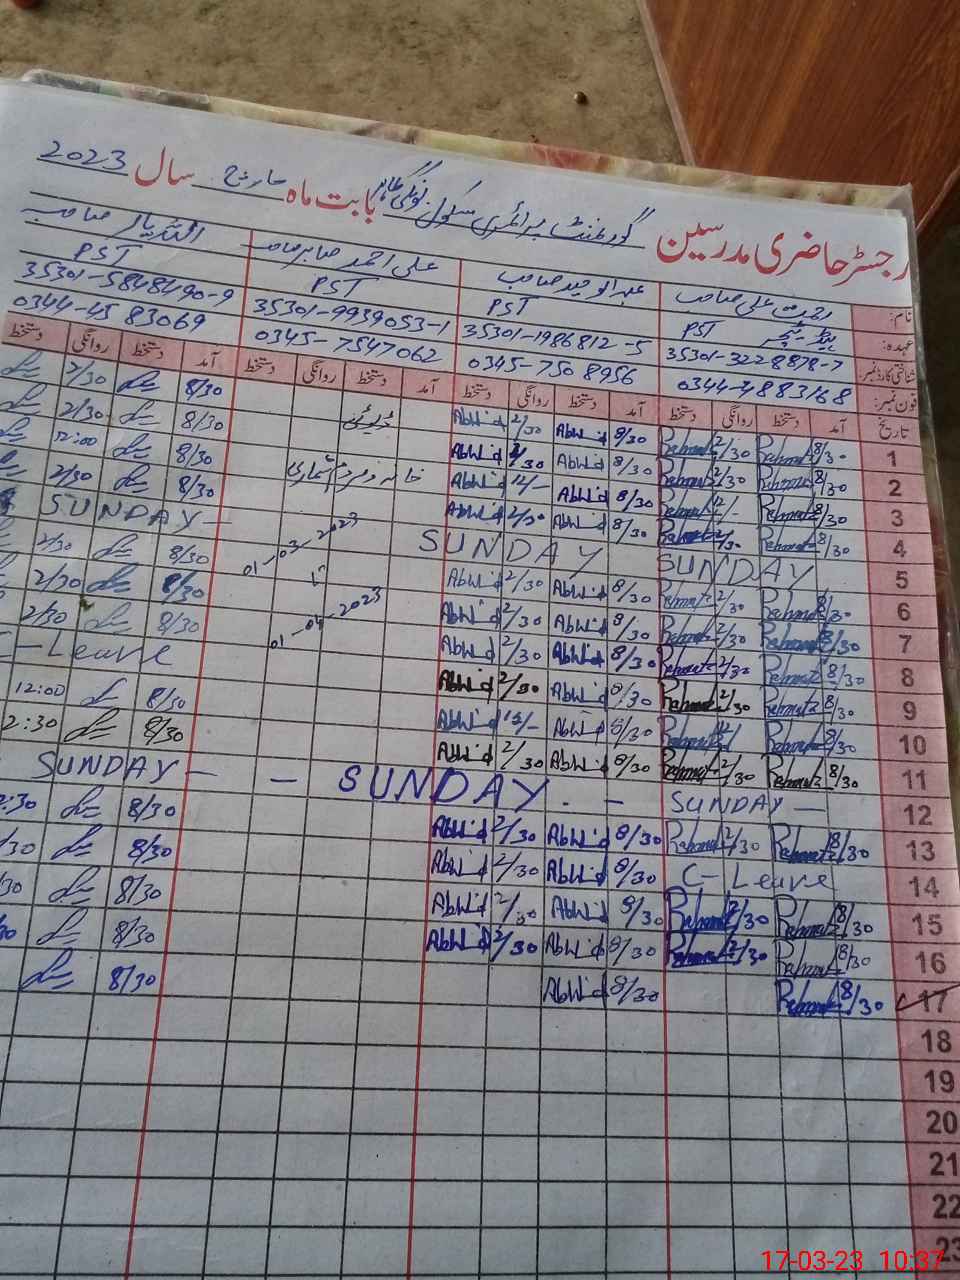 رجسٹر حاضری مدرسین گورنمنٹ پرائمری سکول بابت ماہ مارچ سال 2023
نام: رحمت علی صاحب عبدالوحید صاحب علی احمد صابر صاحب اللہ یار صاحب
عہدہ: PST ہیڈ ٹیچر PST PST PST
شناختی کارڈ نمبر: 35301-3228878-7 35301-1986812-5 35301-9939053-1 35301-5848490-9
فون نمبر: 0344-4883168 0345-7508956 0345-7547062 0344-4583069
تاریخ آمد دستخط روانگی دستخط آمد دستخط روانگی دستخط آمد دستخط روانگی دستخط آمد دستخط روانگی دستخط
1 8/30 Rehmat 2/30 Rehmat 8/30 AbWd 2/30 AbWd 8/30 2/30
2 8/30 Rehmat 2/30 Rehmat 8/30 AbWd 2/30 AbWd 8/30 2/30
3 8/30 Rehmat 12/- Rehmat 8/30 AbWd 12/- AbWd خانہ و مردم شماری 8/30 12:00
4 8/30 Rehmat 2/30 Rehmat 8/30 AbWd 2/30 AbWd 8/30 2/30
5 SUNDAY SUNDAY 01-03-2023 SUNDAY
6 8/30 Rehmat 2/30 Rehmat 8/30 AbWd 2/30 AbWd تا 8/30 2/30
7 8/30 Rehmat 2/30 Rehmat 8/30 AbWd 2/30 AbWd 01-04-2023 8/30 2/30
8 8/30 Rehmat 2/30 Rehmat 8/30 AbWd 2/30 AbWd 8/30 2/30
9 8/30 Rehmat 2/30 Rehmat 8/30 AbWd 2/30 AbWd C-Leave
10 8/30 Rehmat 12/ Rehmat 8/30 AbWd 12/- AbWd 8/30 12:00
11 8/30 Rehmat 2/30 Rehmat 8/30 AbWd 2/30 AbWd 8/30 2:30
12 SUNDAY - SUNDAY - - SUNDAY -
13 8/30 Rehmat 2/30 Rehmat 8/30 AbWd 2/30 AbWd 8/30 2:30
14 C-Leave 8/30 AbWd 2/30 AbWd 8/30 /30
15 8/30 Rehmat 2/30 Rehmat 8/30 AbWd 2/30 AbWd 8/30 /30
16 8/30 Rehmat 2/30 Rehmat 8/30 AbWd 2/30 AbWd 8/30 /30
17 8/30 Rehmat 8/30 AbWd 8/30
18
19
20
21
22
23
17-03-23 10:37